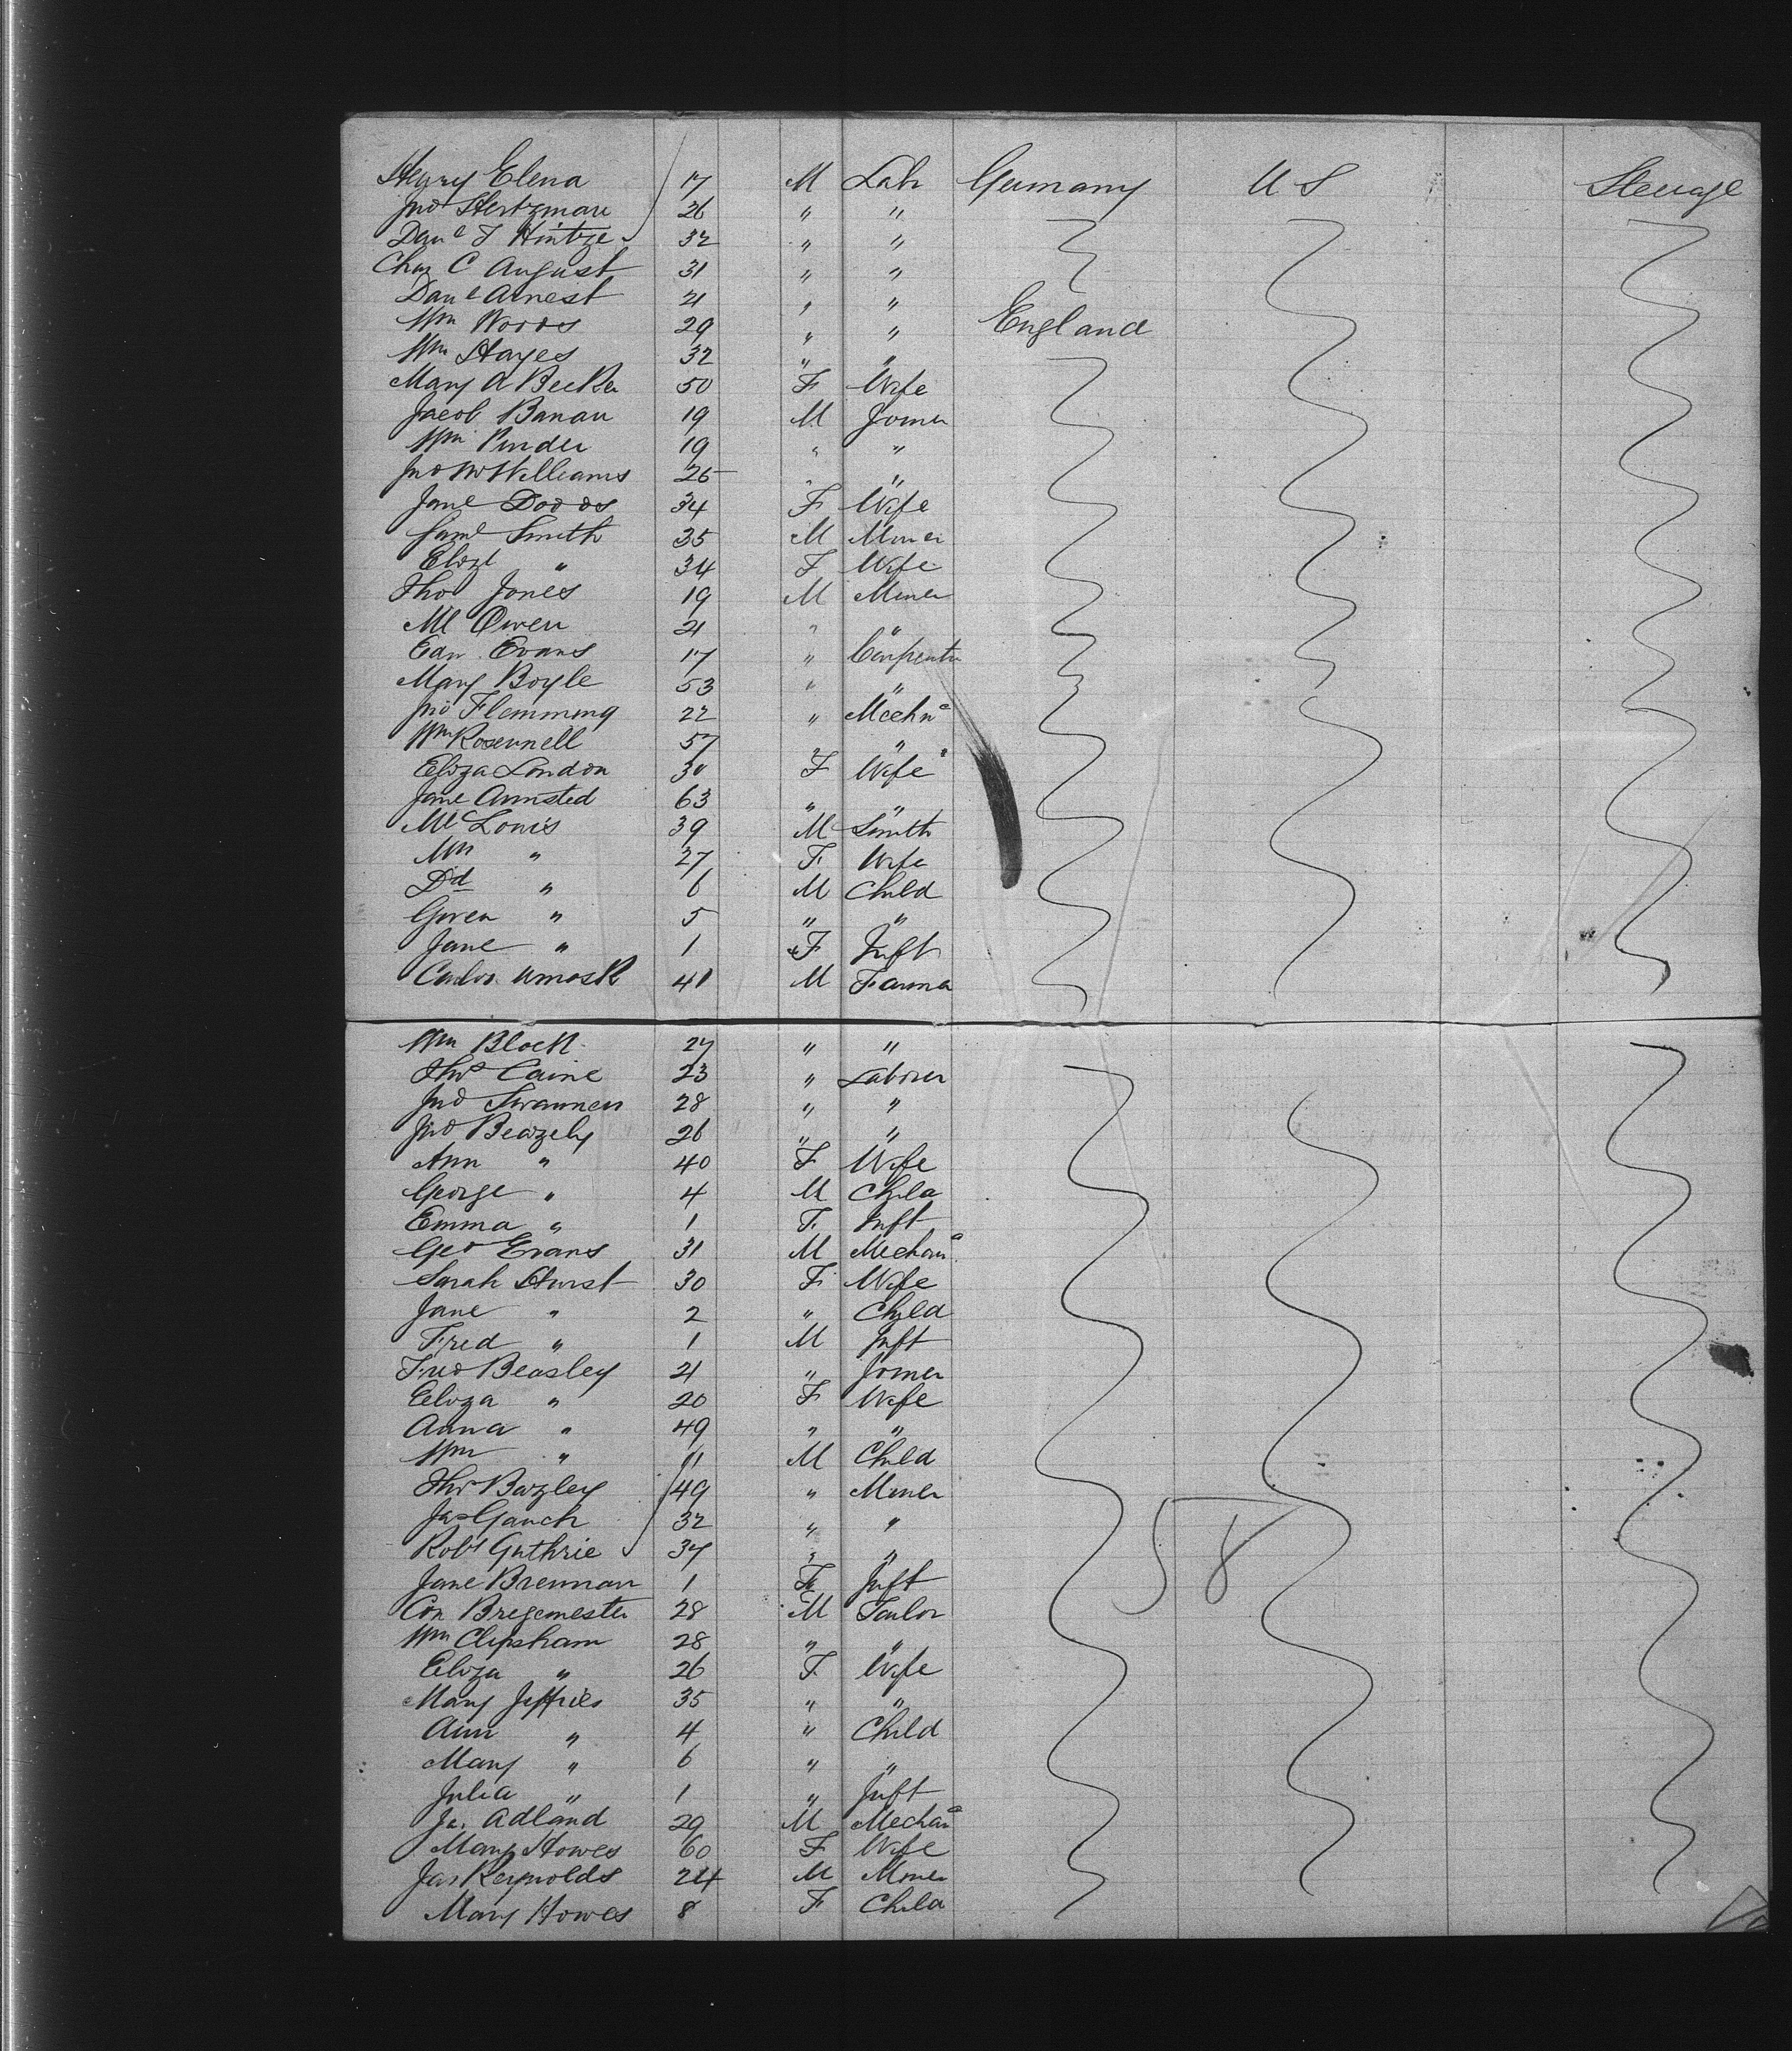 Henry Elena 17 M Labr Germany U S Steerage
Jno Hertzman 26 " "
Danl F Hintze 32 " "
Chas C August 31 " "
Danl Arnest 21 " "
Wm Woods 29 " " England
Wm Hayes 32 " "
Mary A Becker 50 F Wife
Jacob Banan 19 M Joiner
Wm Pinder 19 " "
Jno W Williams 25 " "
Jane Dodds 34 F Wife
Saml Smith 35 M Miner
Elizt " 34 F Wife
Tho Jones 19 M Miner
Ml Owen 21 " "
Edw Evans 17 " Carpenter
Mary Boyle 53 " "
Jno Flemming 22 " Mechnc
Wm Rosennell 57 " "
Eliza London 30 F Wife
Jane Armsted 63 " "
Ml Louis 39 M Smith
Mrs " 27 F Wife
Dd " 6 M Child
Gwen " 5 " "
Jane " 1 F Inft
41 M Farmer
Wm Block 27 " "
Thos Caine 23 " Laborer
Jno Swannen 28 " "
Jno Beazely 26 " "
Ann " 40 F Wife
George " 4 M Child
Emma " 1 F Inft
Geo Evans 31 M Mechanc
Sarah Hurst 30 F Wife
Jane " 2 " Child
Fred " 1 M Inft
Fred Beasley 21 " Joiner
Eliza " 20 F Wife
Anna " 49 " "
Wm " 11 M Child
Thos Bazley 49 " Miner
Jas Gauch 32 " "
Robt Guthrie 37 " "
Jane Brennan 1 F Inft
Con Bregemester 28 M Tailor
Wm Clipsham 28 " "
Eliza " 26 F Wife
Mary Jeffries 35 " "
Ann " 4 " Child
Mary " 6 " "
Julia " 1 " Inft
Ja. Adland 29 M Mechanc
Mary Howes 60 F Wife
Jas Reynolds 24 M Miner
Mary Howes 8 F Child
58